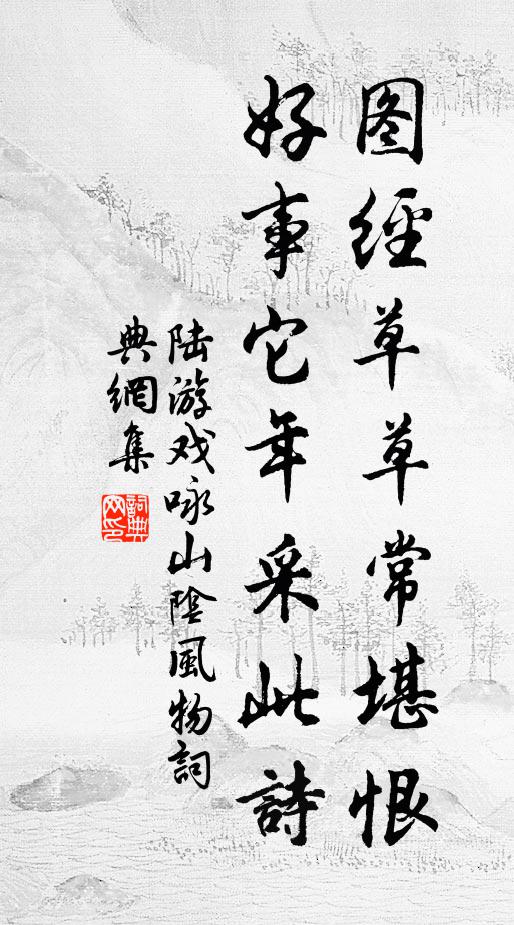 图經草草常堪恨
好事它年采此詩
陆游戏咏山陰風物詞
典網集
詞典網印